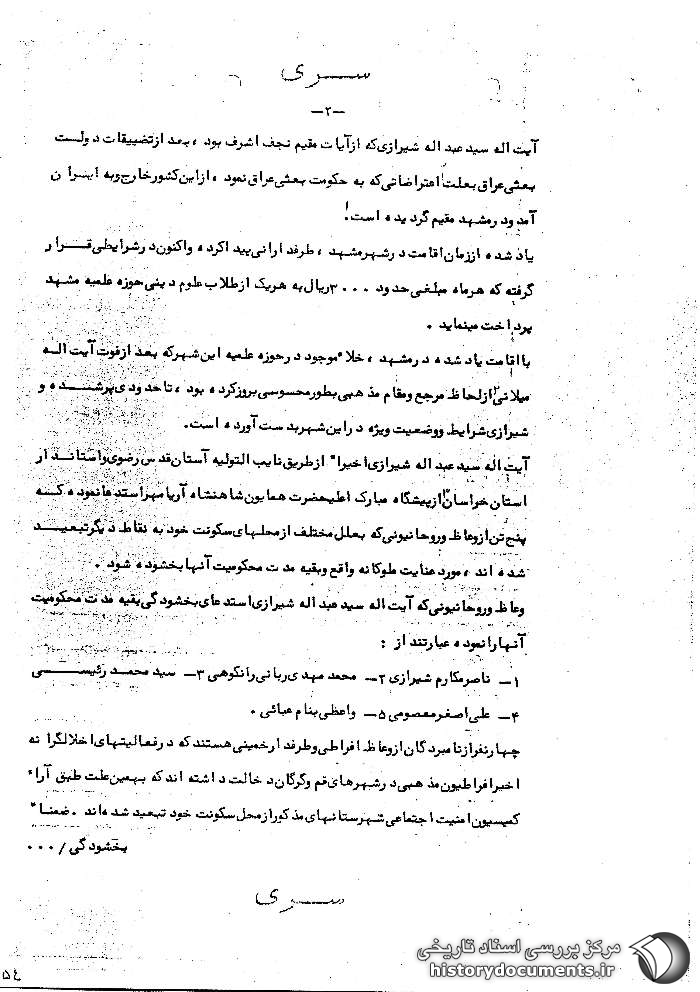 سری
-۲-
آیت اله سید عبد اله شیرازی که از آیات مقیم نجف اشرف بود ، بعد از تضییقات دولت
بعثی عراق بعلت اعتراضاتی که به حکومت بعثی عراق نمود ، از این کشور خارج و به ایران
آمد و در مشهد مقیم گردیده است!
یاد شده از زمان اقامت در شهر مشهد ، طرفدارانی پیدا کرده و اکنون در شرایطی قرار
گرفته که هر ماه مبلغی حدود ۳۰۰۰ ریال به هریک از طلاب علوم دینی حوزه علمیه مشهد
پرداخت مینماید .
با اقامت یاد شده در مشهد ، خلاء موجود در حوزه علمیه این شهر که بعد از فوت آیت اله
میلانی از لحاظ مرجع و مقام مذهبی بطور محسوسی بروز کرده بود ، تا حدودی پر شده و
شیرازی شرایط و وضعیت ویژه در این شهر بدست آورده است.
آیت اله سید عبد اله شیرازی اخیرا" از طریق نایب التولیه آستان قدس رضوی و استاندار
استان خراسان از پیشگاه مبارک اعلیحضرت همایون شاهنشاه آریامهر استدعا نموده که
پنج تن از وعاظ و روحانیونی که بعلل مختلف از محلهای سکونت خود به نقاط دیگر تبعید
شده اند ، مورد عنایت ملوکانه واقع و بقیه مدت محکومیت آنها بخشوده شود .
وعاظ و روحانیونی که آیت اله سید عبد اله شیرازی استدعای بخشودگی بقیه مدت محکومیت
آنها را نموده عبارتند از :
۱- ناصر مکارم شیرازی ۲- محمد مهدی ربانی رانکوهی ۳- سید محمد رئیسی
۴- علی اصغر معصومی ۵- واعظی بنام عبائی .
چهار نفر از نامبردگان از وعاظ افراطی و طرفدار خمینی هستند که در فعالیتهای اخلالگرانه
اخیر افراطیون مذهبی در شهرهای قم و گرگان دخالت داشته اند که بهمین علت طبق آراء
کمیسیون امنیت اجتماعی شهرستانهای مذکور از محل سکونت خود تبعید شده اند . ضمنا"
بخشودگی / ...
سری
۵۴
مرکز بررسی اسناد تاریخی
historydocuments.ir